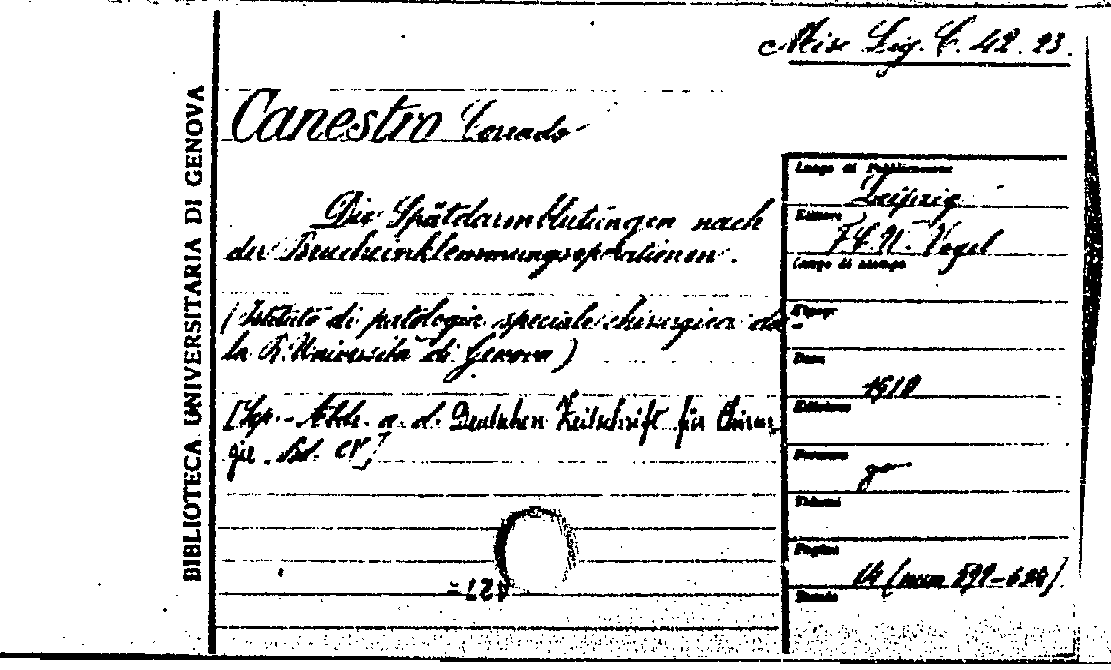 Misc Lig. C. 42. 23.
BIBLIOTECA UNIVERSITARIA DI GENOVA
Canestro Corrado
Die Spätdarmblutungen nach
der Brucheinklemmungsoperationen.
(Istituto di patologia speciale chirurgica del-
la R. Università di Genova)
[Sep.- Abdr. a. d. Deutschen Zeitschrift für Chirur
gie. Bd. CV]
Luogo di Pubblicazione
Leipzig
Editore
F.C.W. Vogel
Luogo di stampa
Tipogr.
Data
1910
Edizione
Formato
8°
Volumi
Pagine
(num 599-624)